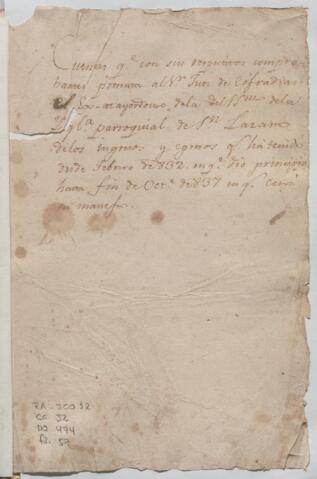 Cuentas q.e con sus respectivos comproban
bantes presenta al S.r Juez de Cofradias
el Ex-mayordomo de la del SS.mo de la
Ygl.a parroquial de S.n Lazaro
de los ingresos y egresos q.e ha tenido
desde Febrero de 832. en q.e dio principio
hasta fin de Oct.e de 837 en q.e cesó
su manejo.
RA-SCO 52
CC 32
DJ 474
f2. 57